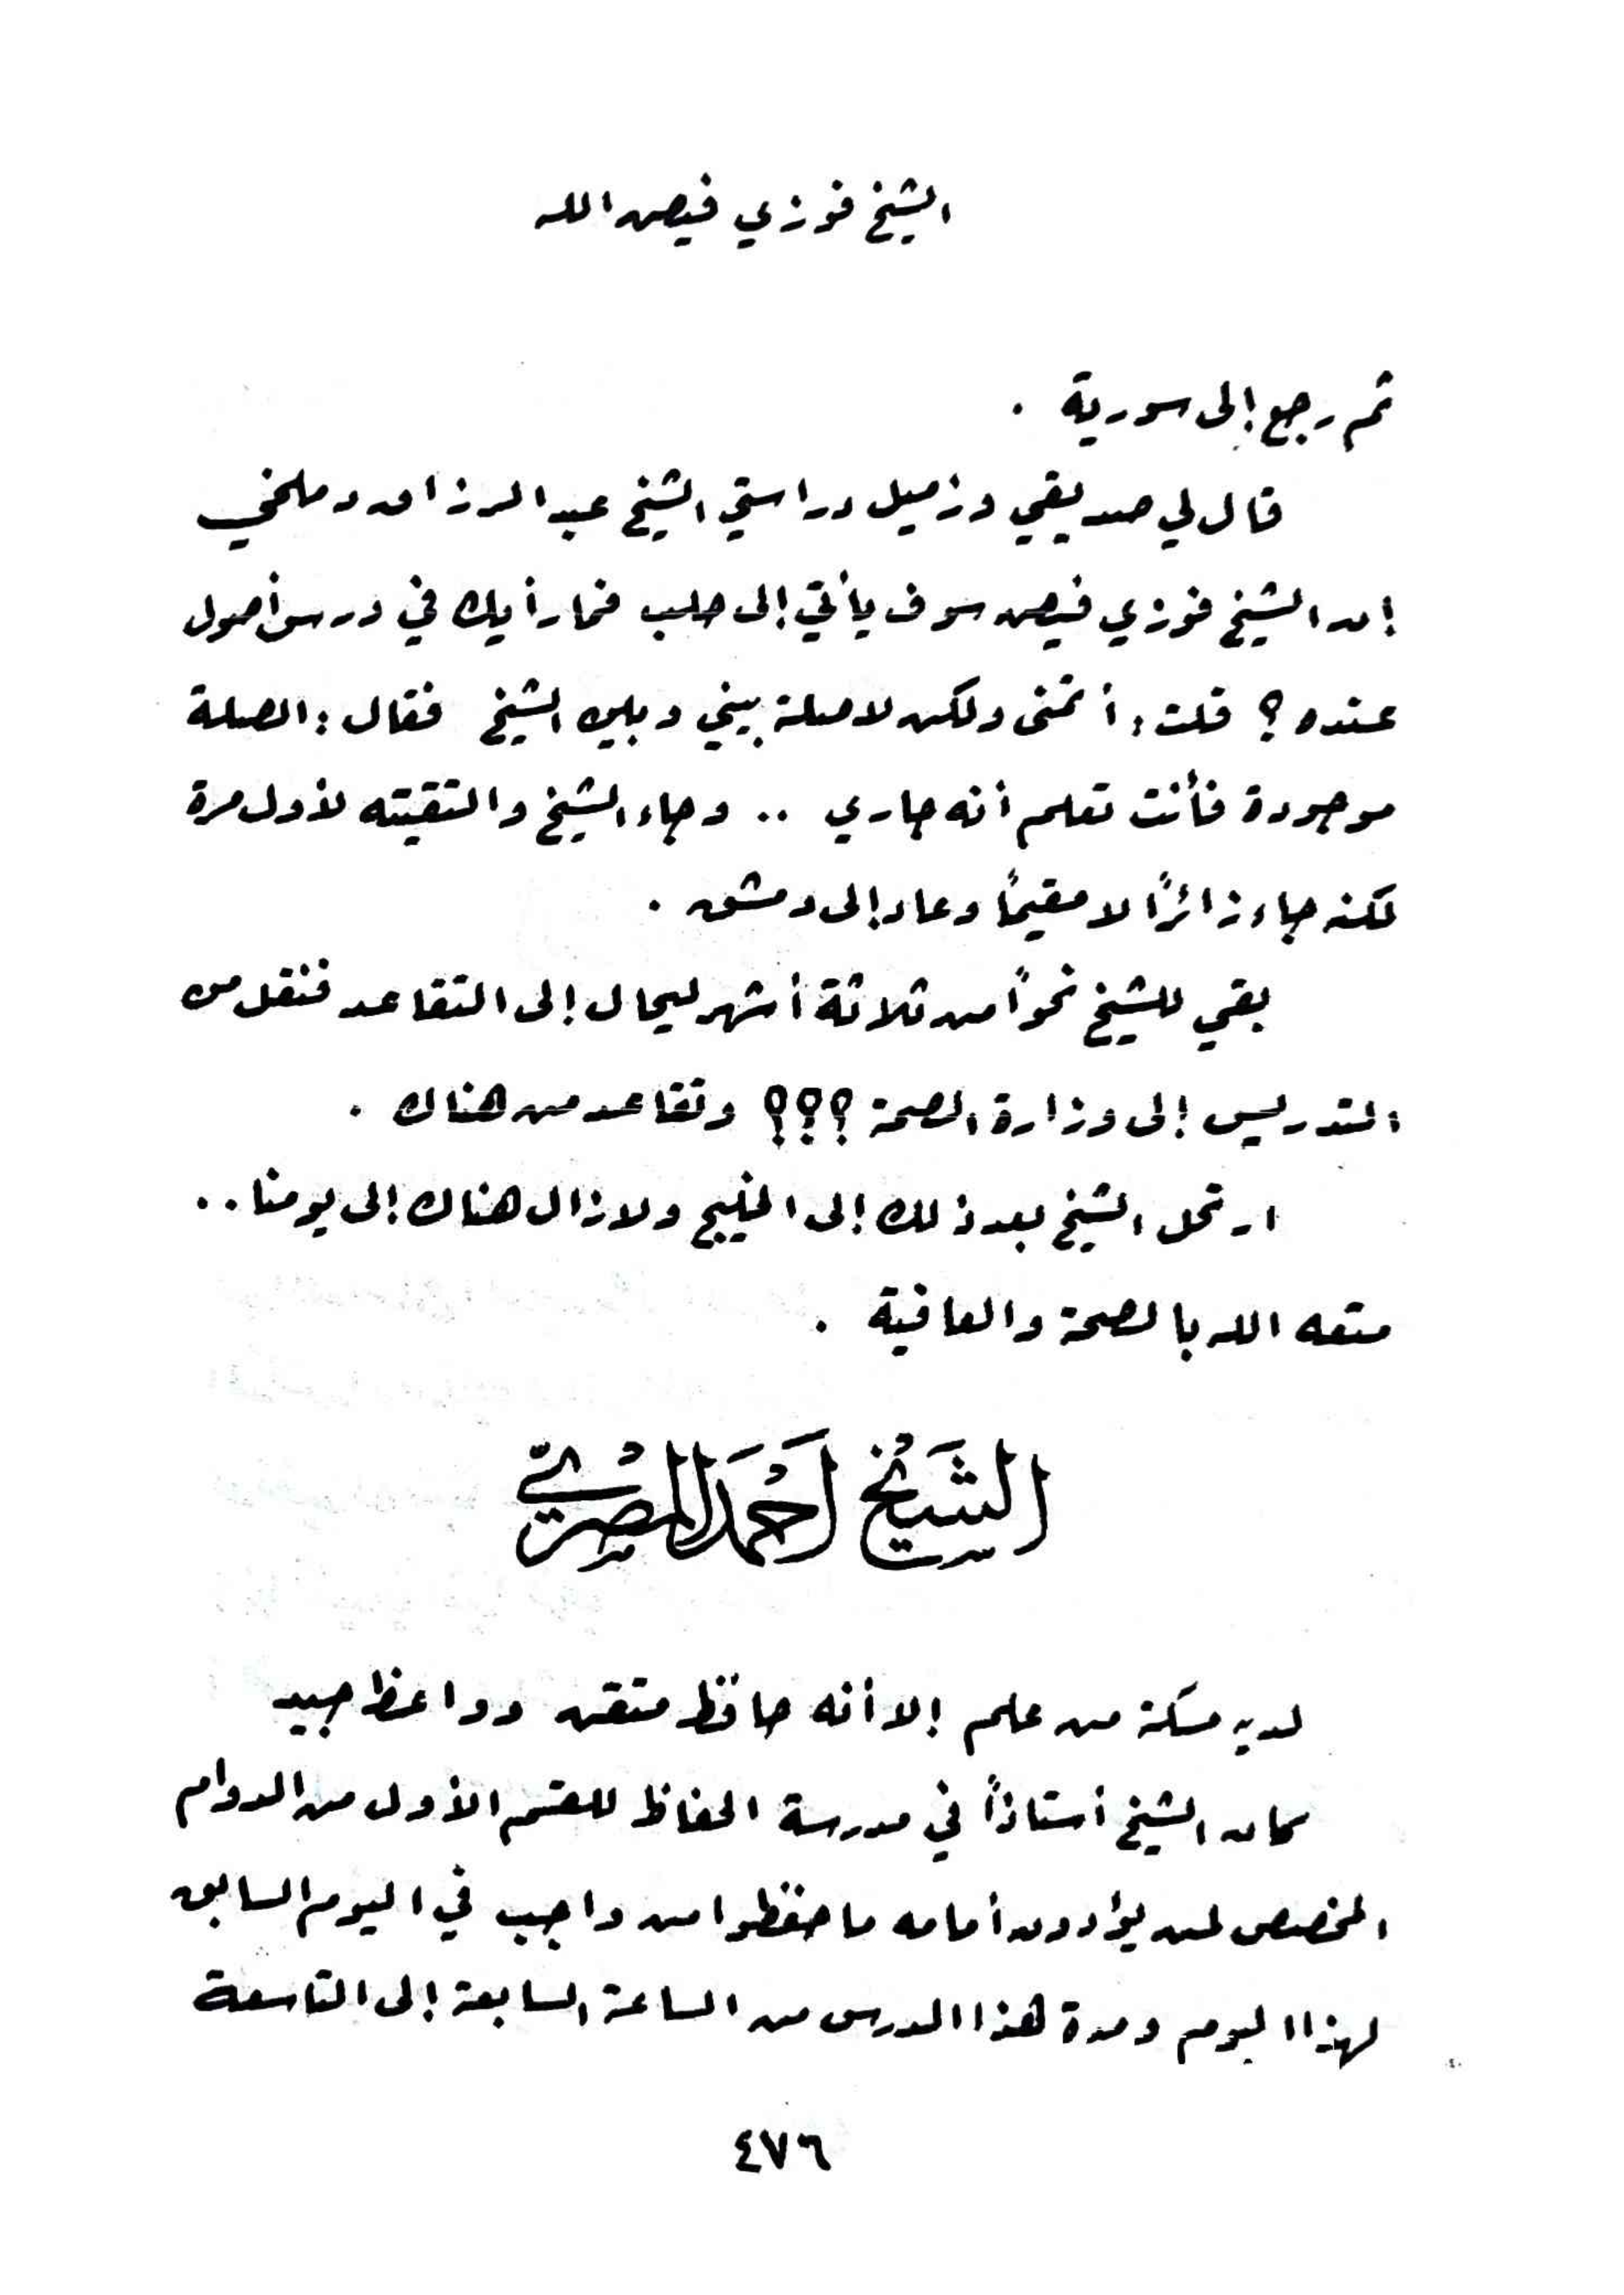 الشيخ فوزي فيض الله
ثم رجع إلى سورية .
قال لي صديقي وزميل دراستي الشيخ عبد الرزاق دملخي
إن الشيخ فوزي فيض سوف يأتي إلى حلب فما رأيك في درس أصول
عنده ؟ قلت : أتمنى ولكن لا صلة بيني وبين الشيخ فقال : الصلة
موجودة فأنت تعلم أنه جاري .. وجاء الشيخ والتقيته لأول مرة
لكنه جاء زائرًا لا مقيمًا وعاد إلى دمشق .
بقي للشيخ نحواً من ثلاثة أشهر ليحال إلى التقاعد فنقل من
التدريس إلى وزارة الصحة ؟؟؟ وتقاعد من هناك .
ارتحل الشيخ بعد ذلك إلى الخليج ولازال هناك إلى يومنا ..
متعه الله بالصحة والعافية .
الشَيْخ أَحْمَد المصْريّ
لديه مسكة من علم إلا أنه حافظ متقن وواعظ جيد
كان الشيخ أستاذاً في مدرسة الحفاظ للقسم الأول من الدوام
المخصص لمن يؤدون أمامه ما حفظوا من واجب في اليوم السابق
لهذا اليوم ومدة هذا الدرس من الساعة السابعة إلى التاسعة
٤٧٦